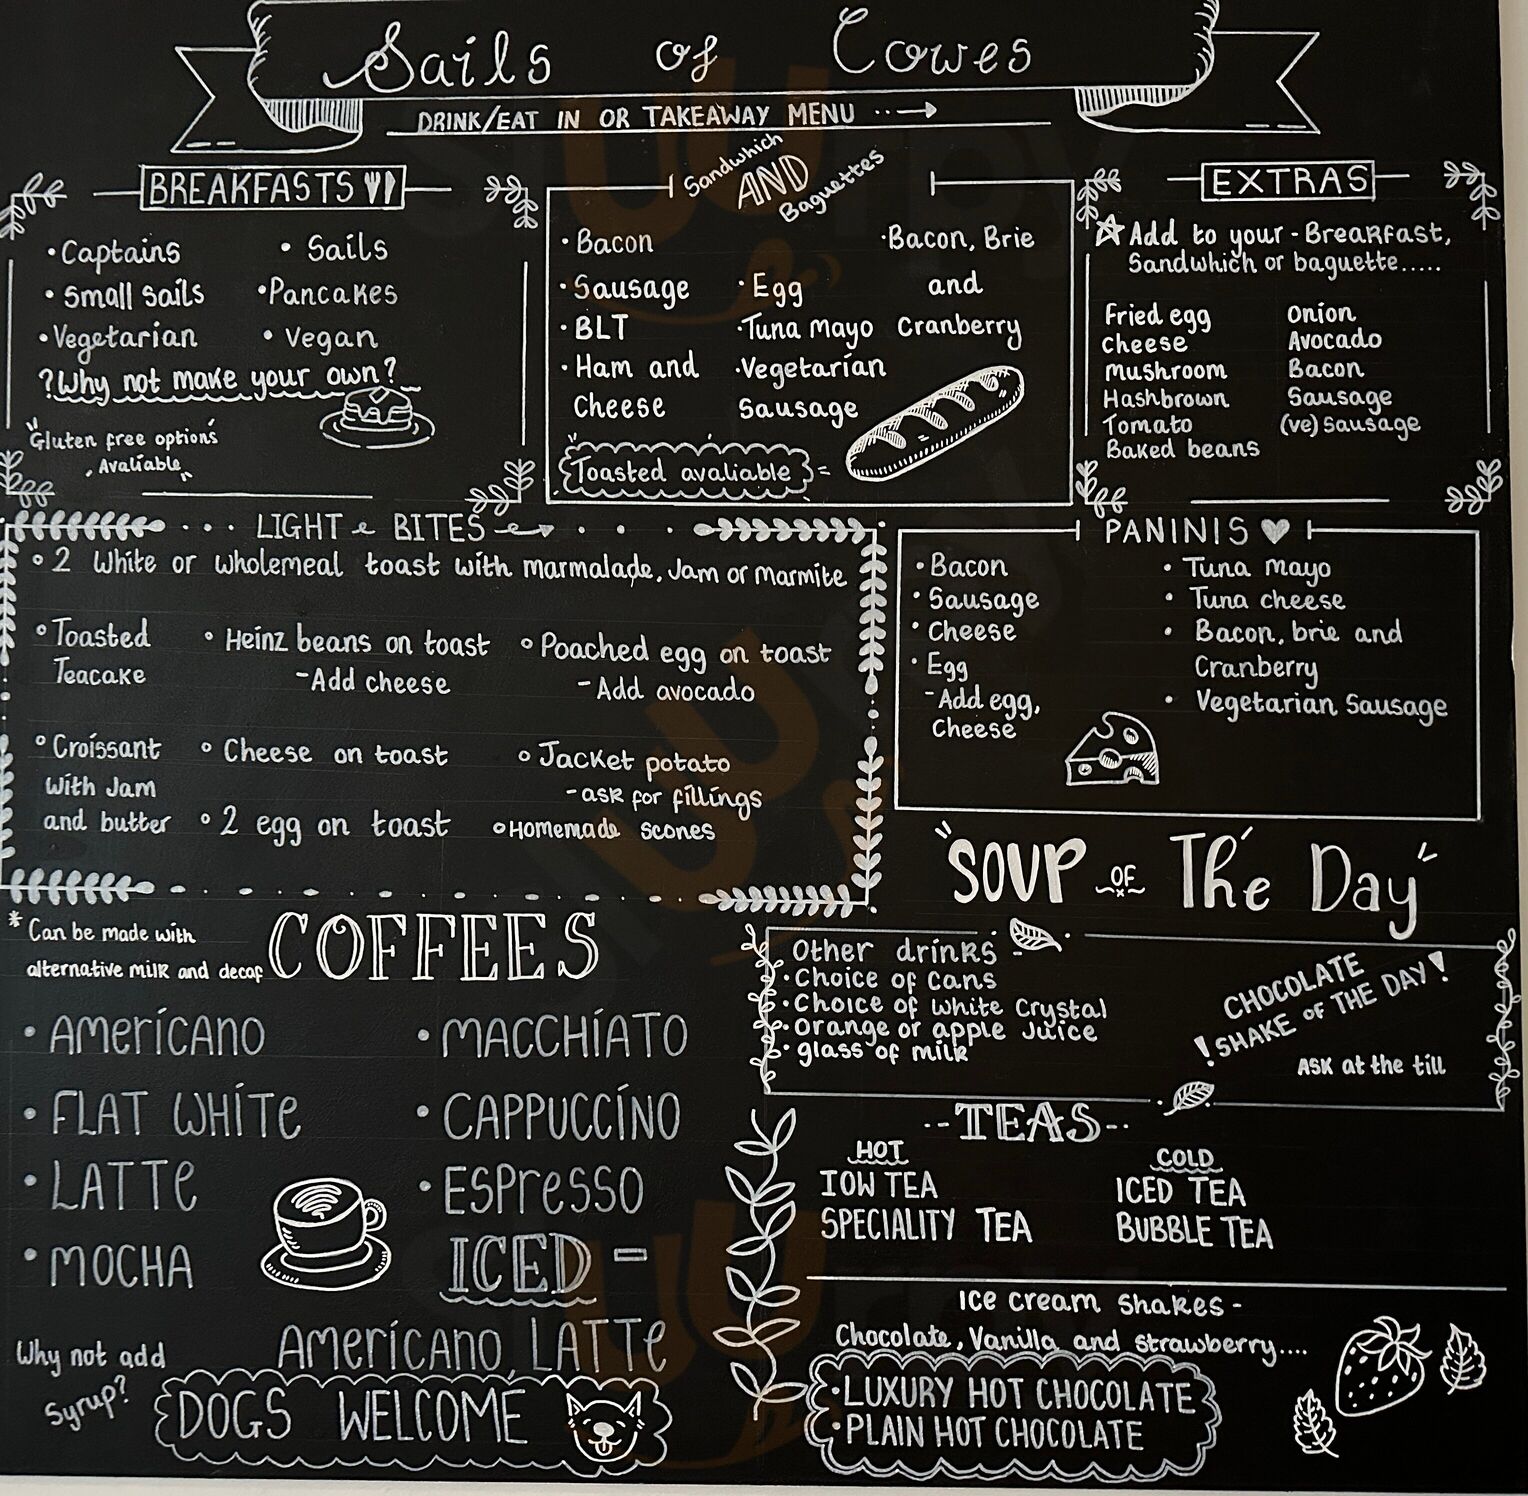 Sails of Cowes
DRINK/EAT IN OR TAKEAWAY MENU
BREAKFASTS
• Captains
• Sails
• Small sails
• Pancakes
• Vegetarian
• Vegan
? Why not make your own?
"Gluten free options
Avaliable"
Sandwhich
AND
Baguettes
• Bacon
• Sausage
• BLT
• Ham and
Cheese
• Egg
• Tuna mayo
• Vegetarian
Sausage
• Bacon, Brie
and
Cranberry
"Toasted avaliable =
EXTRAS
☆ Add to your - Breakfast,
Sandwhich or baguette.....
Fried egg
cheese
mushroom
Hashbrown
Tomato
Baked beans
Onion
Avocado
Bacon
Sausage
(ve) Sausage
LIGHT BITES
• 2 White or wholemeal toast with marmalade, Jam or Marmite
• Toasted
Teacake
• Heinz beans on toast
- Add cheese
• Poached egg on toast
- Add avocado
• Croissant
With Jam
and butter
• Cheese on toast
• 2 egg on toast
• Jacket potato
- ask for fillings
• Homemade scones
PANINIS
• Bacon
• Sausage
• Cheese
• Egg
- Add egg,
Cheese
• Tuna mayo
• Tuna cheese
• Bacon, brie and
Cranberry
• Vegetarian Sausage
"SOUP OF The Day"
* Can be made with
alternative milk and decaf
COFFEES
• AMERICANO
• MACCHIATO
• FLAT WHITE
• CAPPUCCINO
• LATTE
• ESPRESSO
• MOCHA
ICED =
AMERICANO, LATTE
Why not add
Syrup?
DOGS WELCOME
Other drinks -
• Choice of Cans
• Choice of White Crystal
• Orange or apple Juice
• glass of milk
CHOCOLATE
! SHAKE OF THE DAY !
ASK at the till
-- TEAS --
HOT
IOW TEA
SPECIALITY TEA
COLD
ICED TEA
BUBBLE TEA
Ice cream shakes -
Chocolate, Vanilla and strawberry....
• LUXURY HOT CHOCOLATE
• PLAIN HOT CHOCOLATE